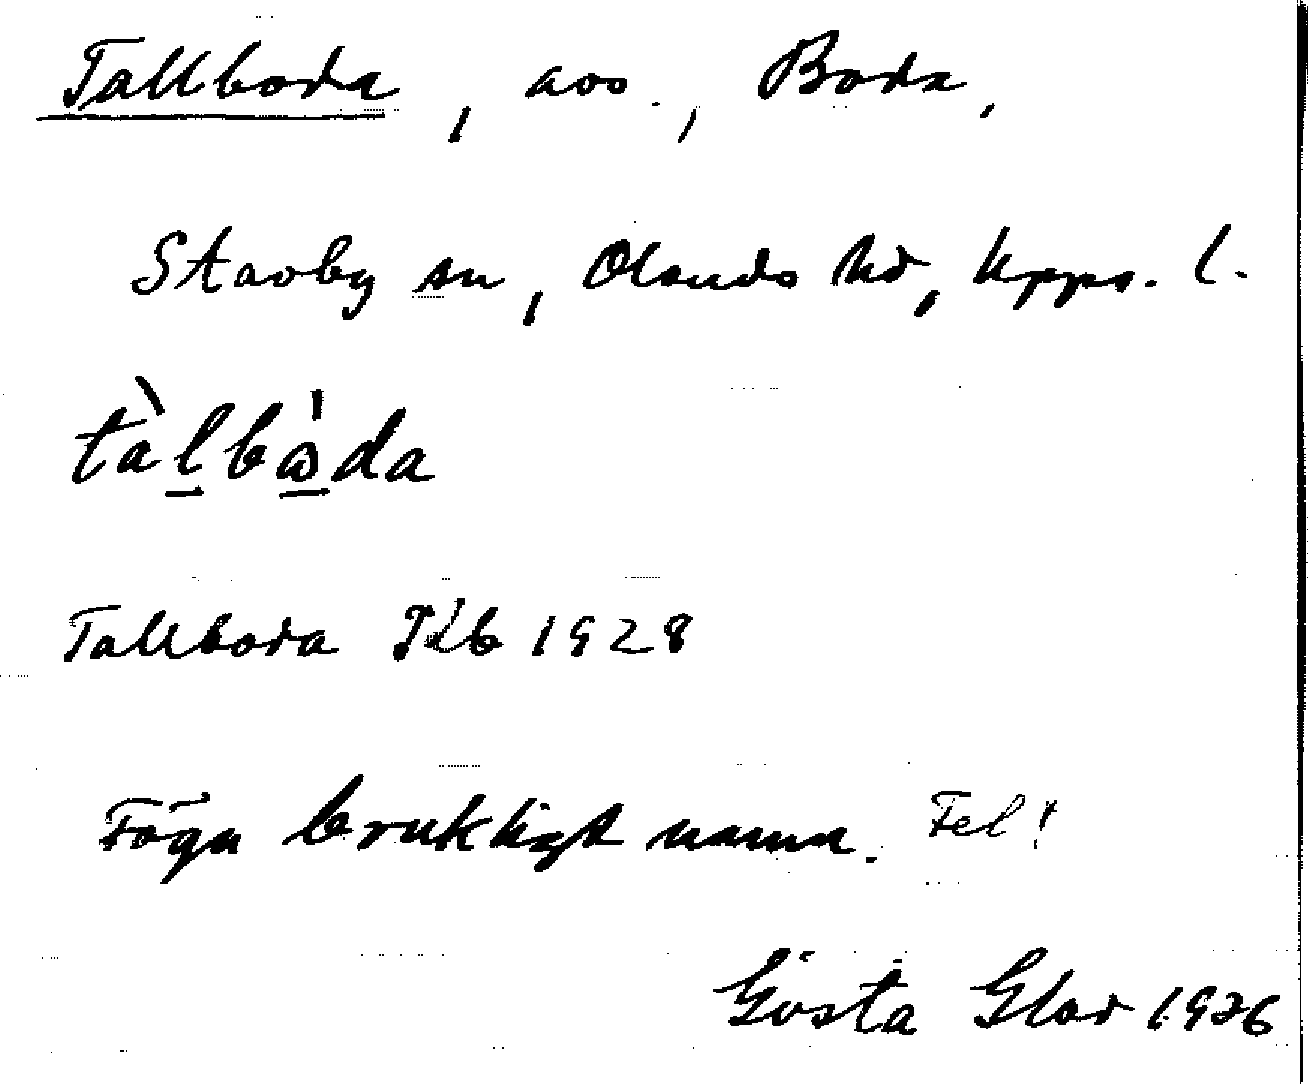 Tallboda, avs., Boda,
Stavby sn, Olands hd, Upps. l.
tàlbà̱da
Tallboda Tkb 1928
Föga brukligt namn. Fel!
Gösta Glad 1936